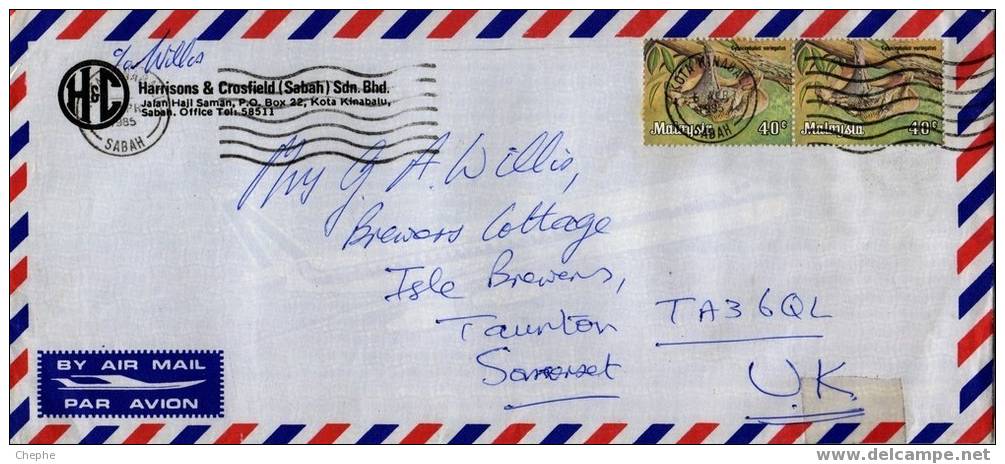 c/o Willis
H&C
Harrisons & Crosfield (Sabah) Sdn. Bhd.
Jalan Haji Saman, P.O. Box 22, Kota Kinabalu,
Sabah. Office Tel: 58511
1985
SABAH
KOTA KINABALU
1985
SABAH
Cynocephalus variegatus
Malaysia 40c
Cynocephalus variegatus
Malaysia 40c
Mrs G. A. Willis,
Brewers Cottage
Isle Brewers,
Taunton
TA3 6QL
Somerset
U.K.
BY AIR MAIL
PAR AVION
Chephe
delcampe.net